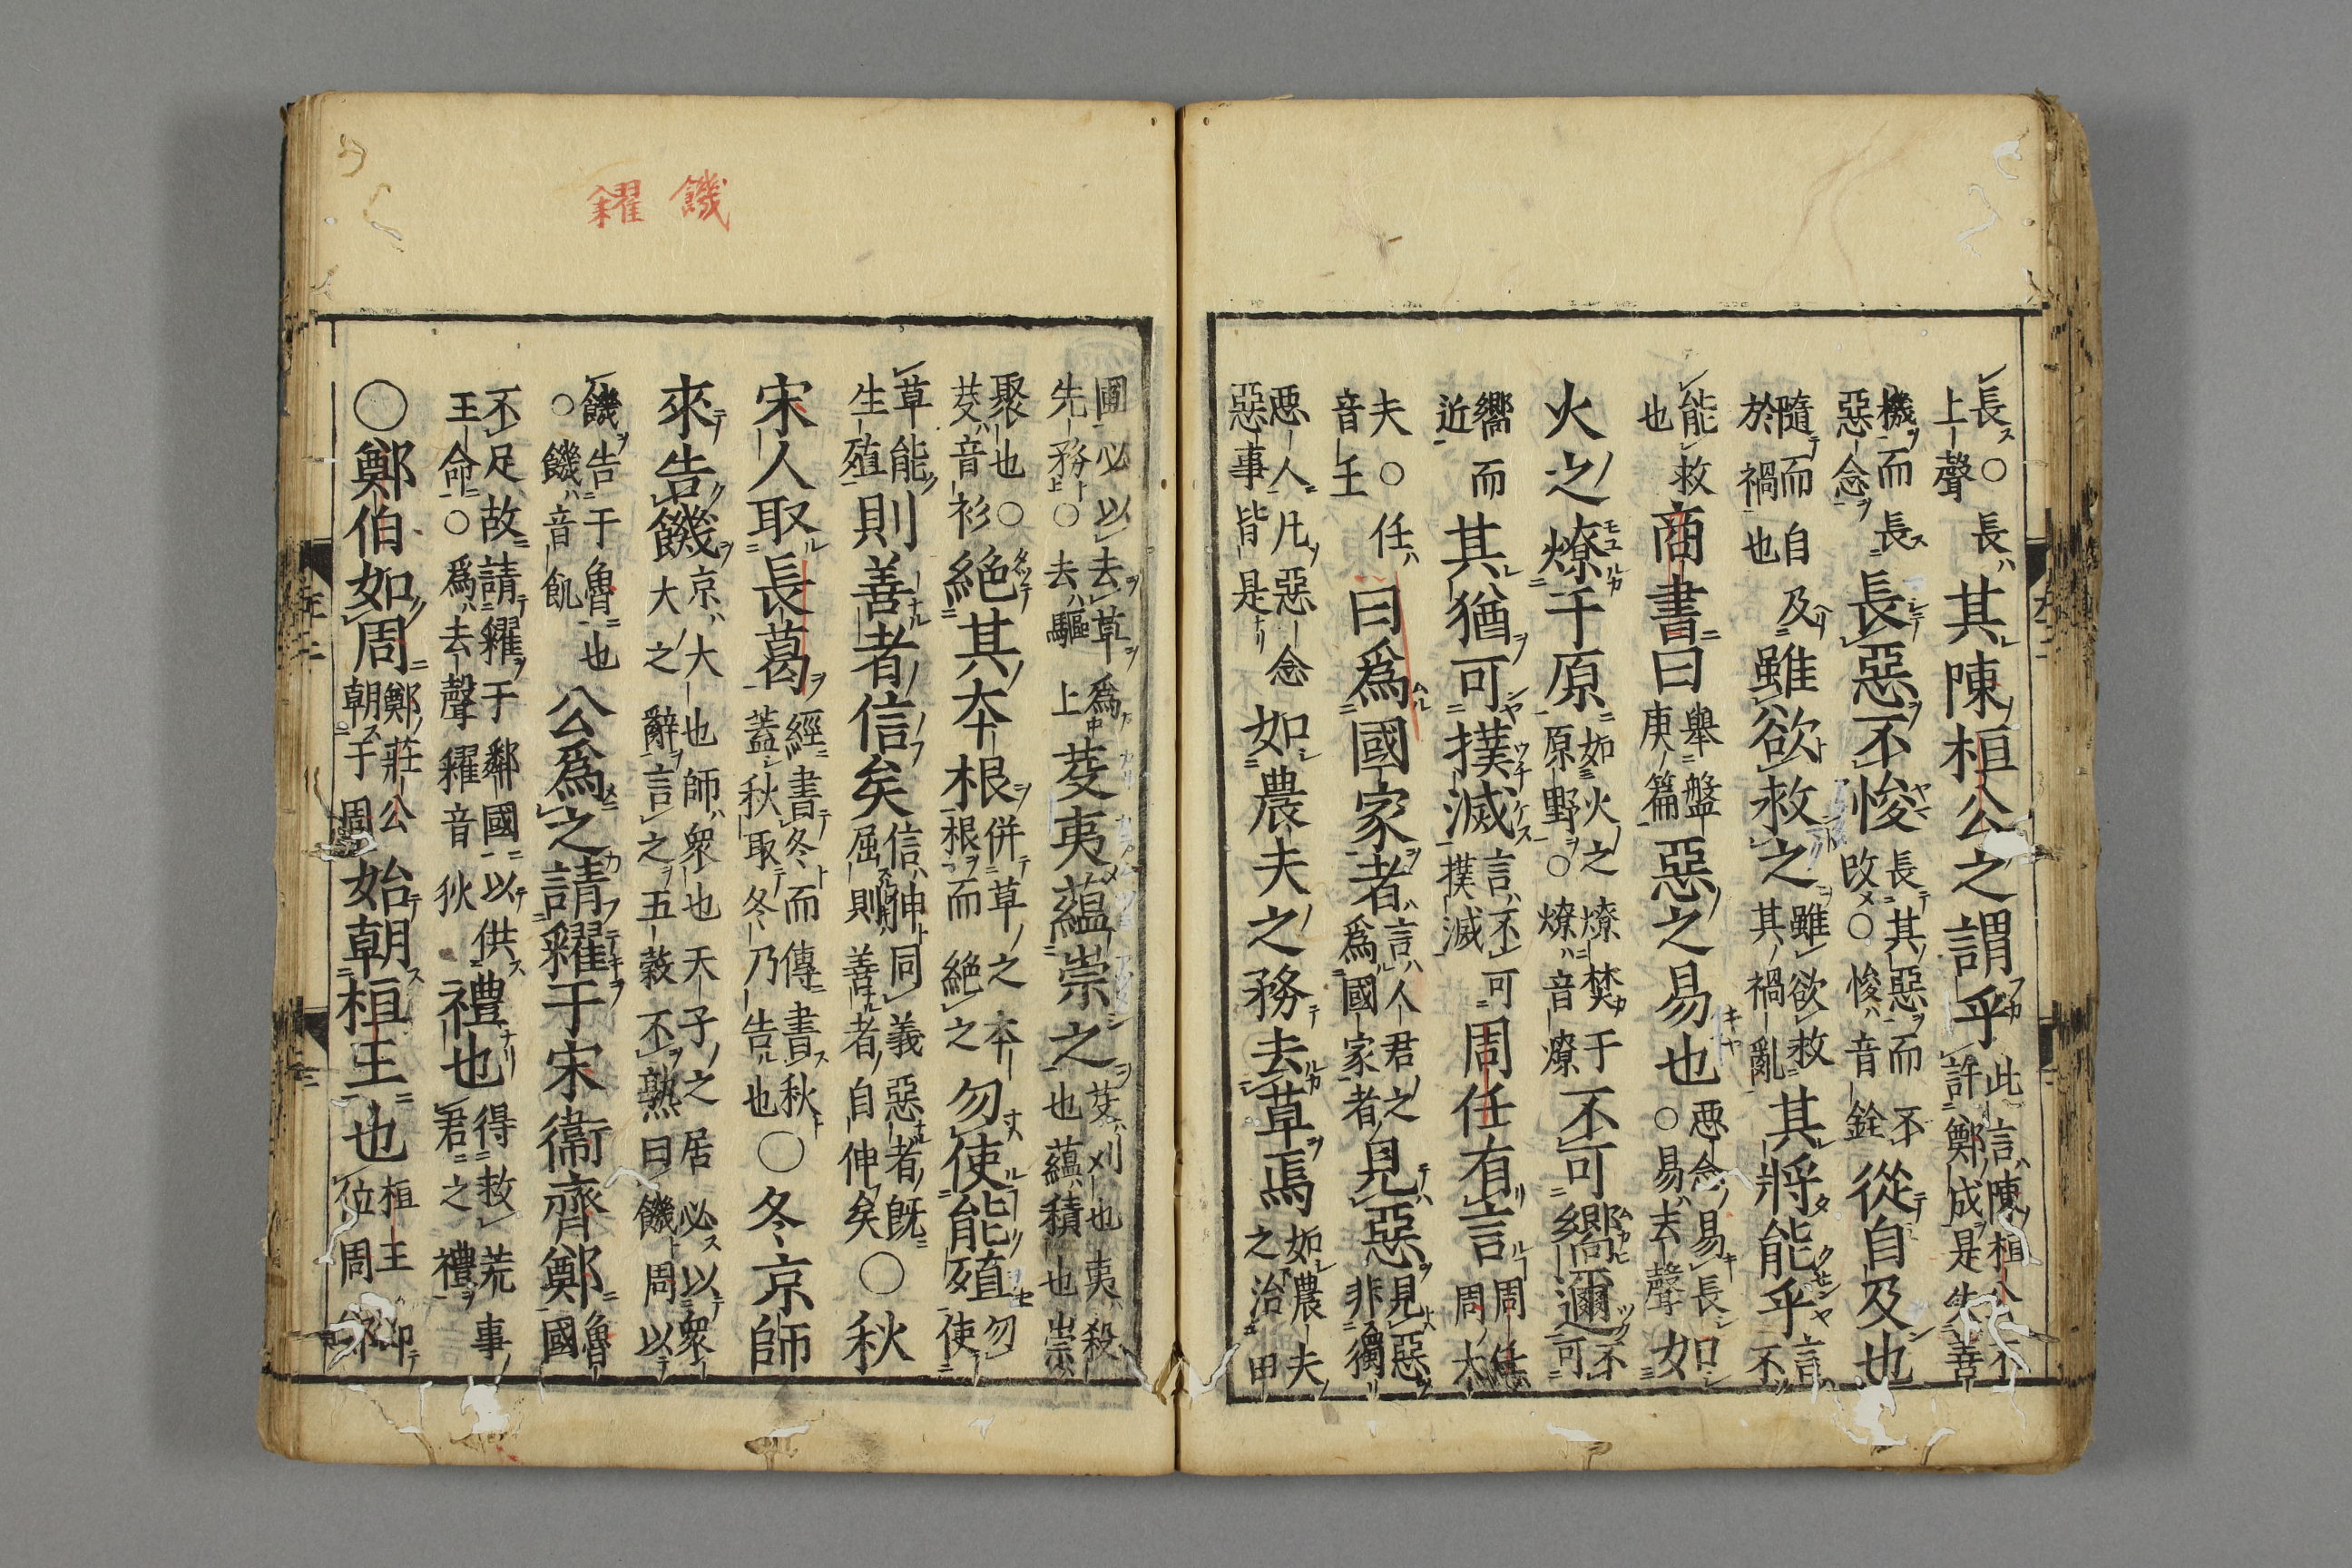 長○長上聲其陳桓公之謂乎此言陳桓公不許鄭成是失善
機而長惡念長惡不悛長其惡而不改○悛音銓從自及也
隨而自及於禍也雖欲救之雖欲救其禍亂其將能乎言不
能救也商書曰舉盤庚篇惡之易也惡念易長○易去聲如
火之燎于原如火之燎焚于原野○燎音燎不可嚮邇不可
嚮而近其猶可撲滅言不可撲滅周任有言周任周大
夫○任音壬曰爲國家者言人君之爲國家者見惡見惡非獨
惡人凡惡念惡事皆是如農夫之務去草焉如農夫之治田
饑
糴
圃必以去草爲先務○去驅上芟夷蘊崇之芟刈也夷殺也蘊積也崇
聚也○芟音衫絕其本根併草之本根而絕之勿使能殖勿使
草能生殖則善者信矣信伸同義惡者既屈則善者自伸矣○秋
宋人取長葛經書冬而傳書秋蓋秋取冬乃告也○冬京師
來告饑京大也師衆也天子之居必以衆大之辭言之五穀不熟曰饑周以
饑告于魯也○饑音飢公爲之請糴于宋衞齊鄭魯國
不足故請糴于鄰國以供王命○爲去聲糴音狄禮也得救荒事君之禮
○鄭伯如周鄭莊公朝于周始朝桓王也桓王位周